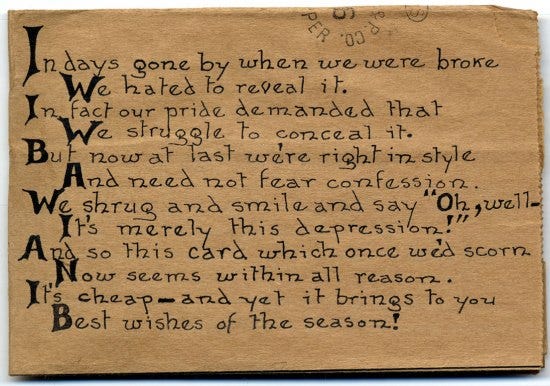 & P. CO.
PER.
In days gone by when we were broke
We hated to reveal it.
In fact our pride demanded that
We struggle to conceal it.
But now at last we're right in style
And need not fear confession.
We shrug and smile and say "Oh, well-
It's merely this depression!"
And so this card which once we'd scorn
Now seems within all reason.
It's cheap—and yet it brings to you
Best wishes of the season!